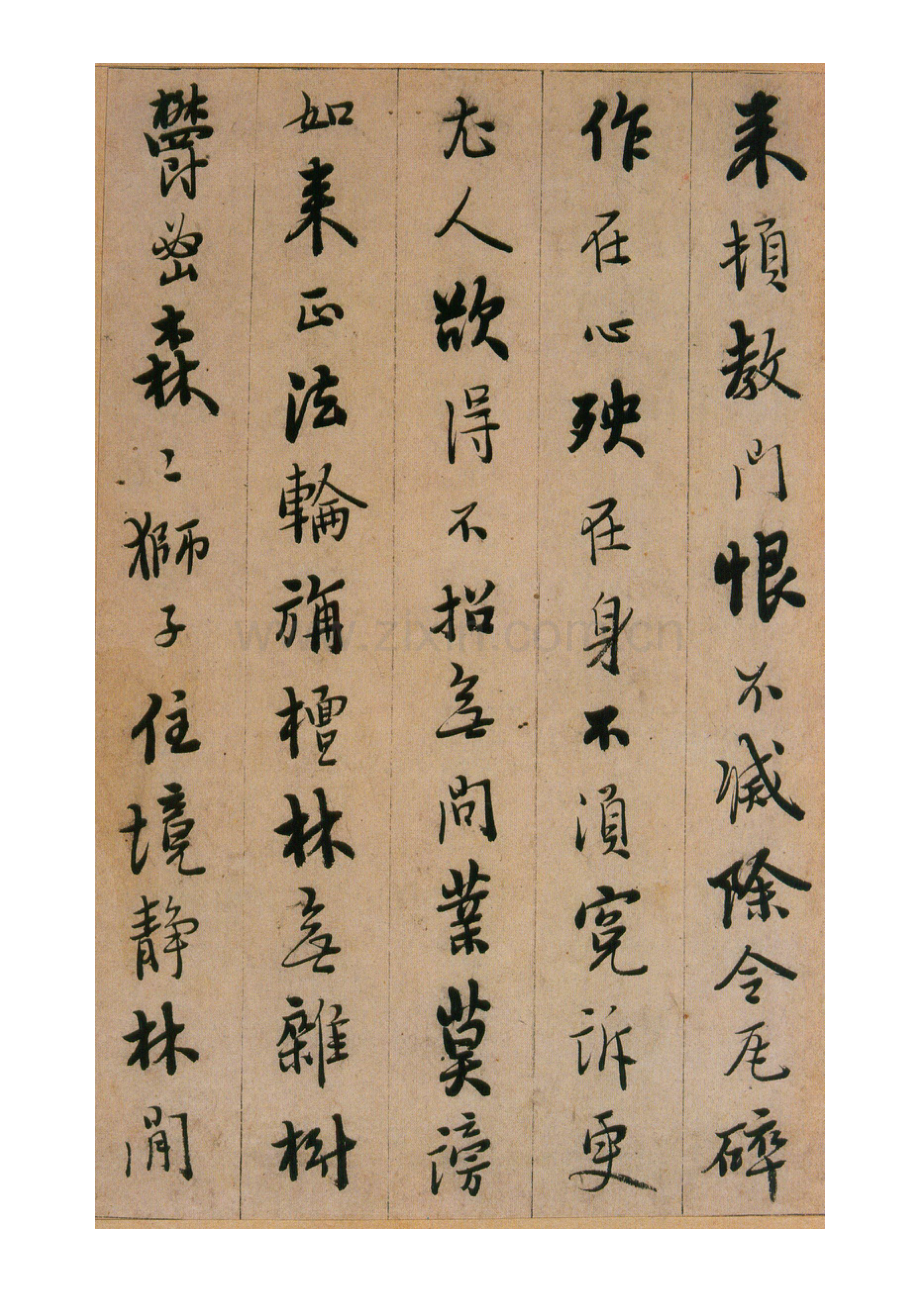 来頓教門恨不滅除令瓦碎
作在心殃在身不須寃訴更
尤人欲得不招無間業莫謗
如来正法輪旃檀林無雜樹
鬱密森〻獅子住境静林閒
www.zixin.com.cn